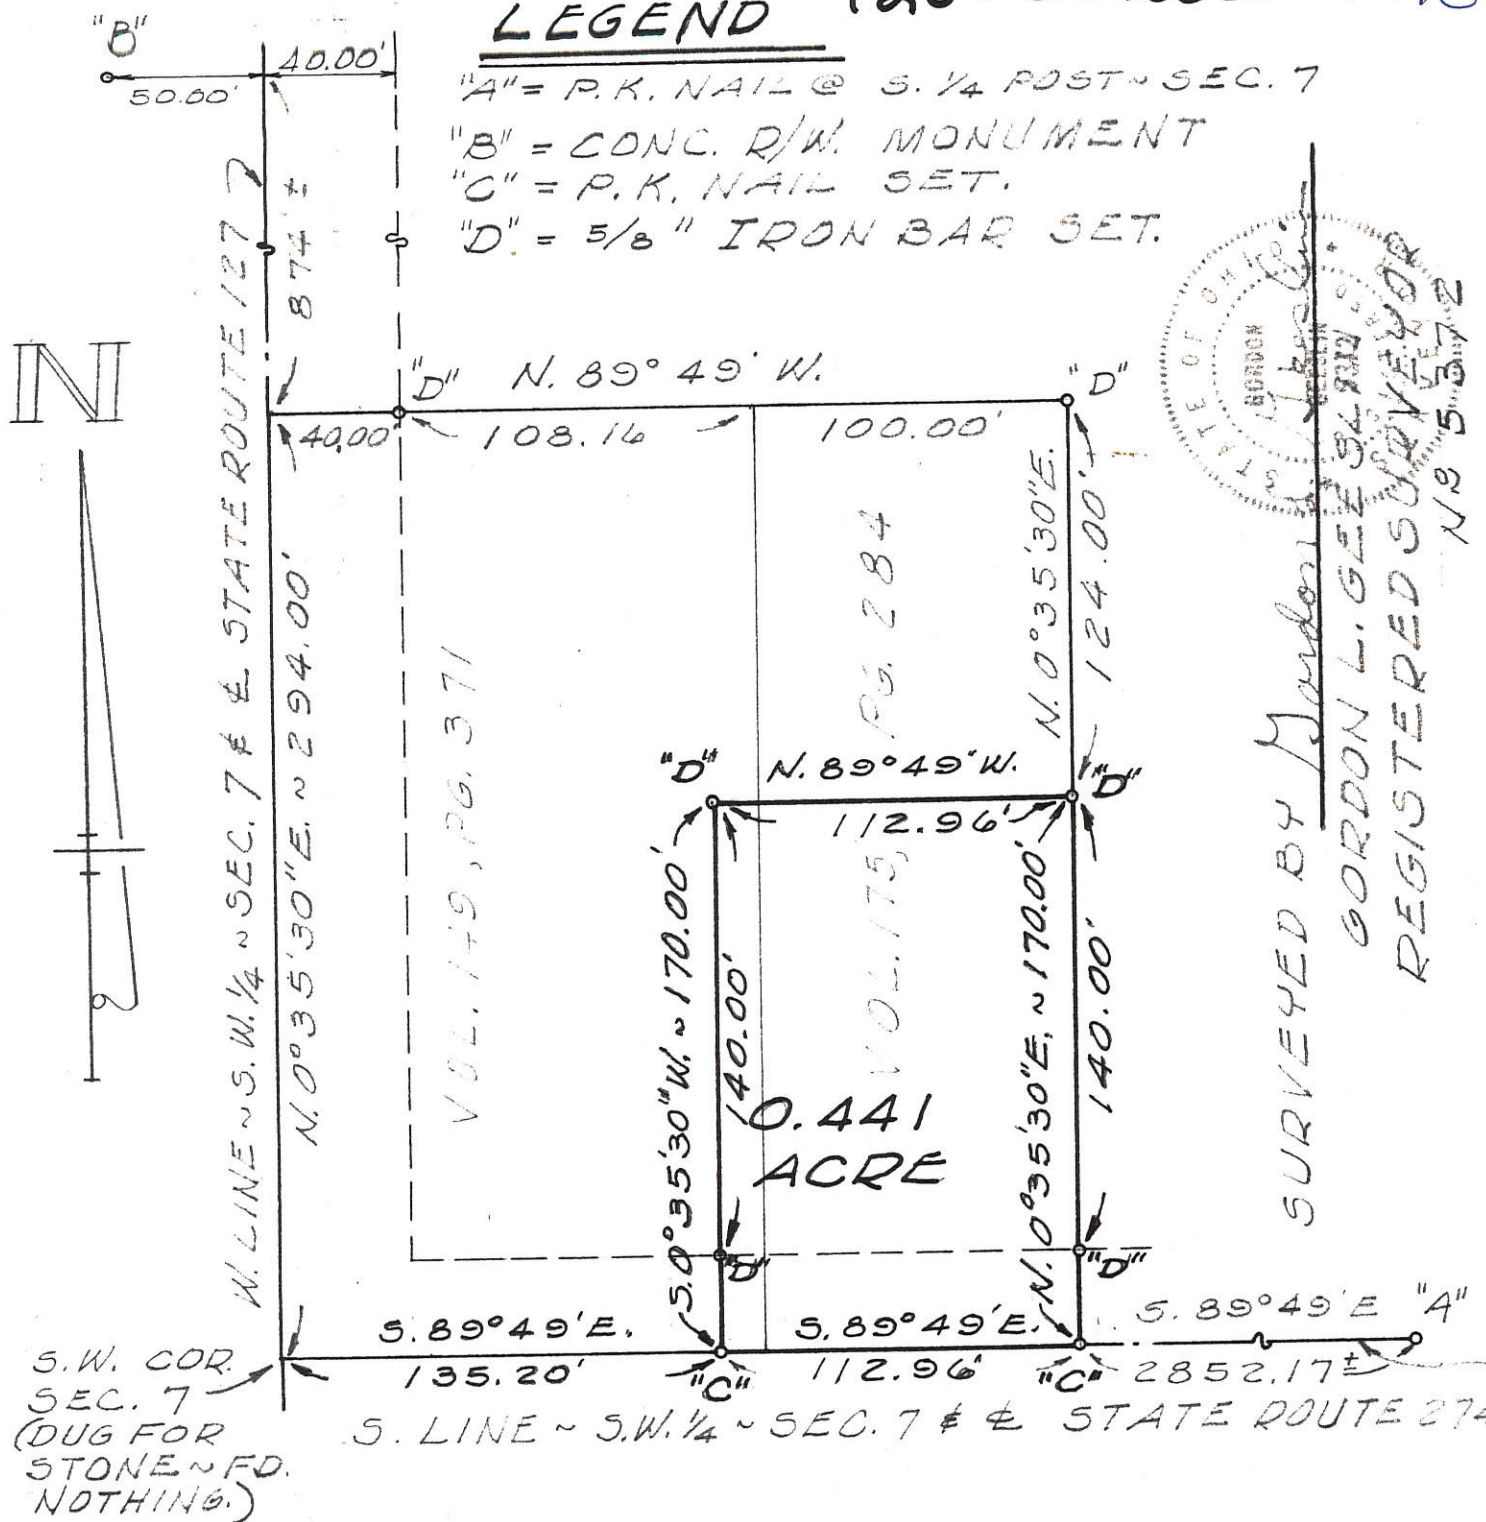 LEGEND
"B"
50.00'
40.00'
"A" = P.K. NAIL @ S. 1/4 POST ~ SEC. 7
"B" = CONC. R/W. MONUMENT
"C" = P.K. NAIL SET.
"D" = 5/8" IRON BAR SET.
874' ±
N
"D"
N. 89° 49' W.
"D"
40.00'
108.16
100.00'
W. LINE ~ S.W. 1/4 ~ SEC. 7 & ℄ STATE ROUTE 127
N. 0° 35' 30" E. ~ 294.00'
VOL. 149, PG. 371
VOL. 175, PG. 284
N. 0° 35' 30" E.
124.00'
"D"
N. 89° 49' W.
"D"
112.96'
S. 0° 35' 30" W. ~ 170.00'
140.00'
N. 0° 35' 30" E. ~ 170.00'
140.00'
0.441
ACRE
"D"
"D"
S. 89° 49' E.
135.20'
"C"
S. 89° 49' E.
112.96'
"C"
S. 89° 49' E
"A"
2852.17' ±
S.W. COR.
SEC. 7
(DUG FOR
STONE ~ FD.
NOTHING.)
S. LINE ~ S.W. 1/4 ~ SEC. 7 & ℄ STATE ROUTE 274
SURVEYED BY Gordon L. Geeslin
GORDON L. GEESLIN
REGISTERED SURVEYOR
Nº 5372
STATE OF OHIO
GORDON